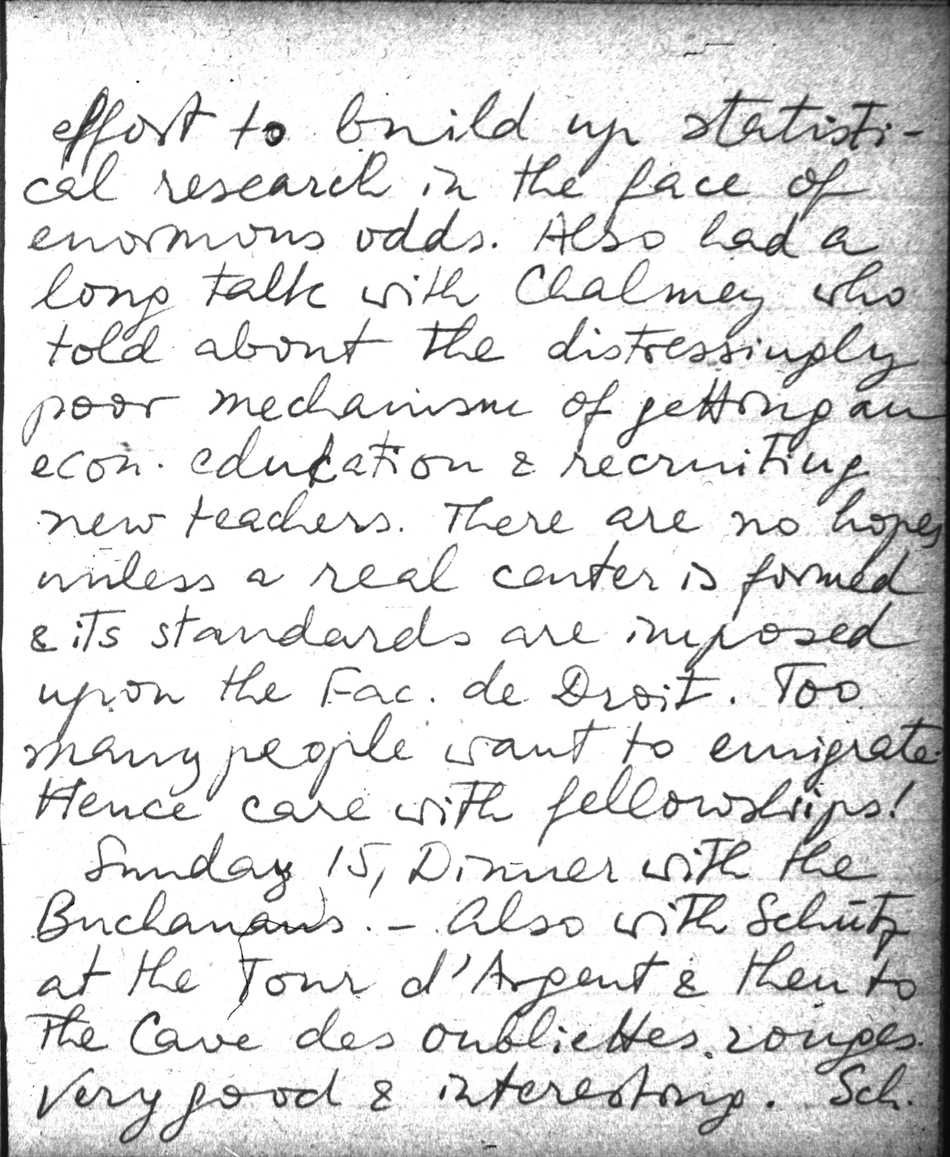 effort to build up statisti-
cal research in the face of
enormous odds. Also had a
long talk with Chalmey who
told about the distressingly
poor mechanism of getting an
econ. education & recruiting
new teachers. There are no hopes
unless a real center is formed
& its standards are imposed
upon the Fac. de Droit. Too
many people want to emigrate.
Hence care with fellowships!
Sunday 15, Dinner with the
Buchanans. – Also with Schütz
at the Tour d'Argent & then to
the Cave des oubliettes rouges.
Very good & interesting. Sch.